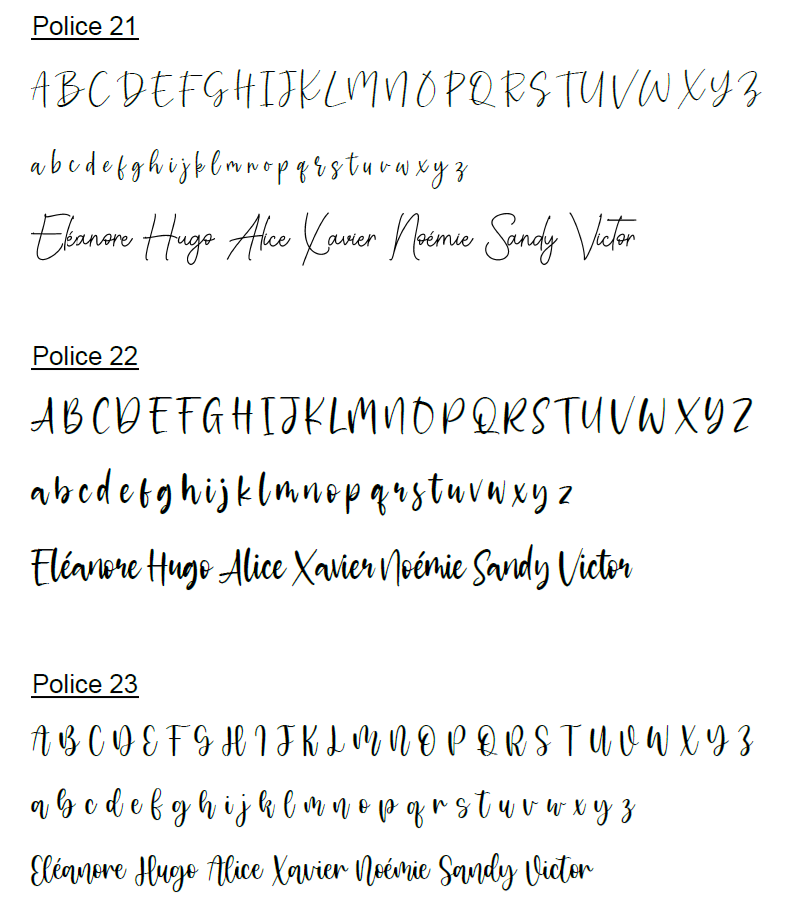 Police 21
A B C D E F G H I J K L M N O P Q R S T U V W X Y Z
a b c d e f g h i j k l m n o p q r s t u v w x y z
Eléanore Hugo Alice Xavier Noémie Sandy Victor
Police 22
A B C D E F G H I J K L M N O P Q R S T U V W X Y Z
a b c d e f g h i j k l m n o p q r s t u v w x y z
Eléanore Hugo Alice Xavier Noémie Sandy Victor
Police 23
A B C D E F G H I J K L M N O P Q R S T U V W X Y Z
a b c d e f g h i j k l m n o p q r s t u v w x y z
Eléanore Hugo Alice Xavier Noémie Sandy Victor